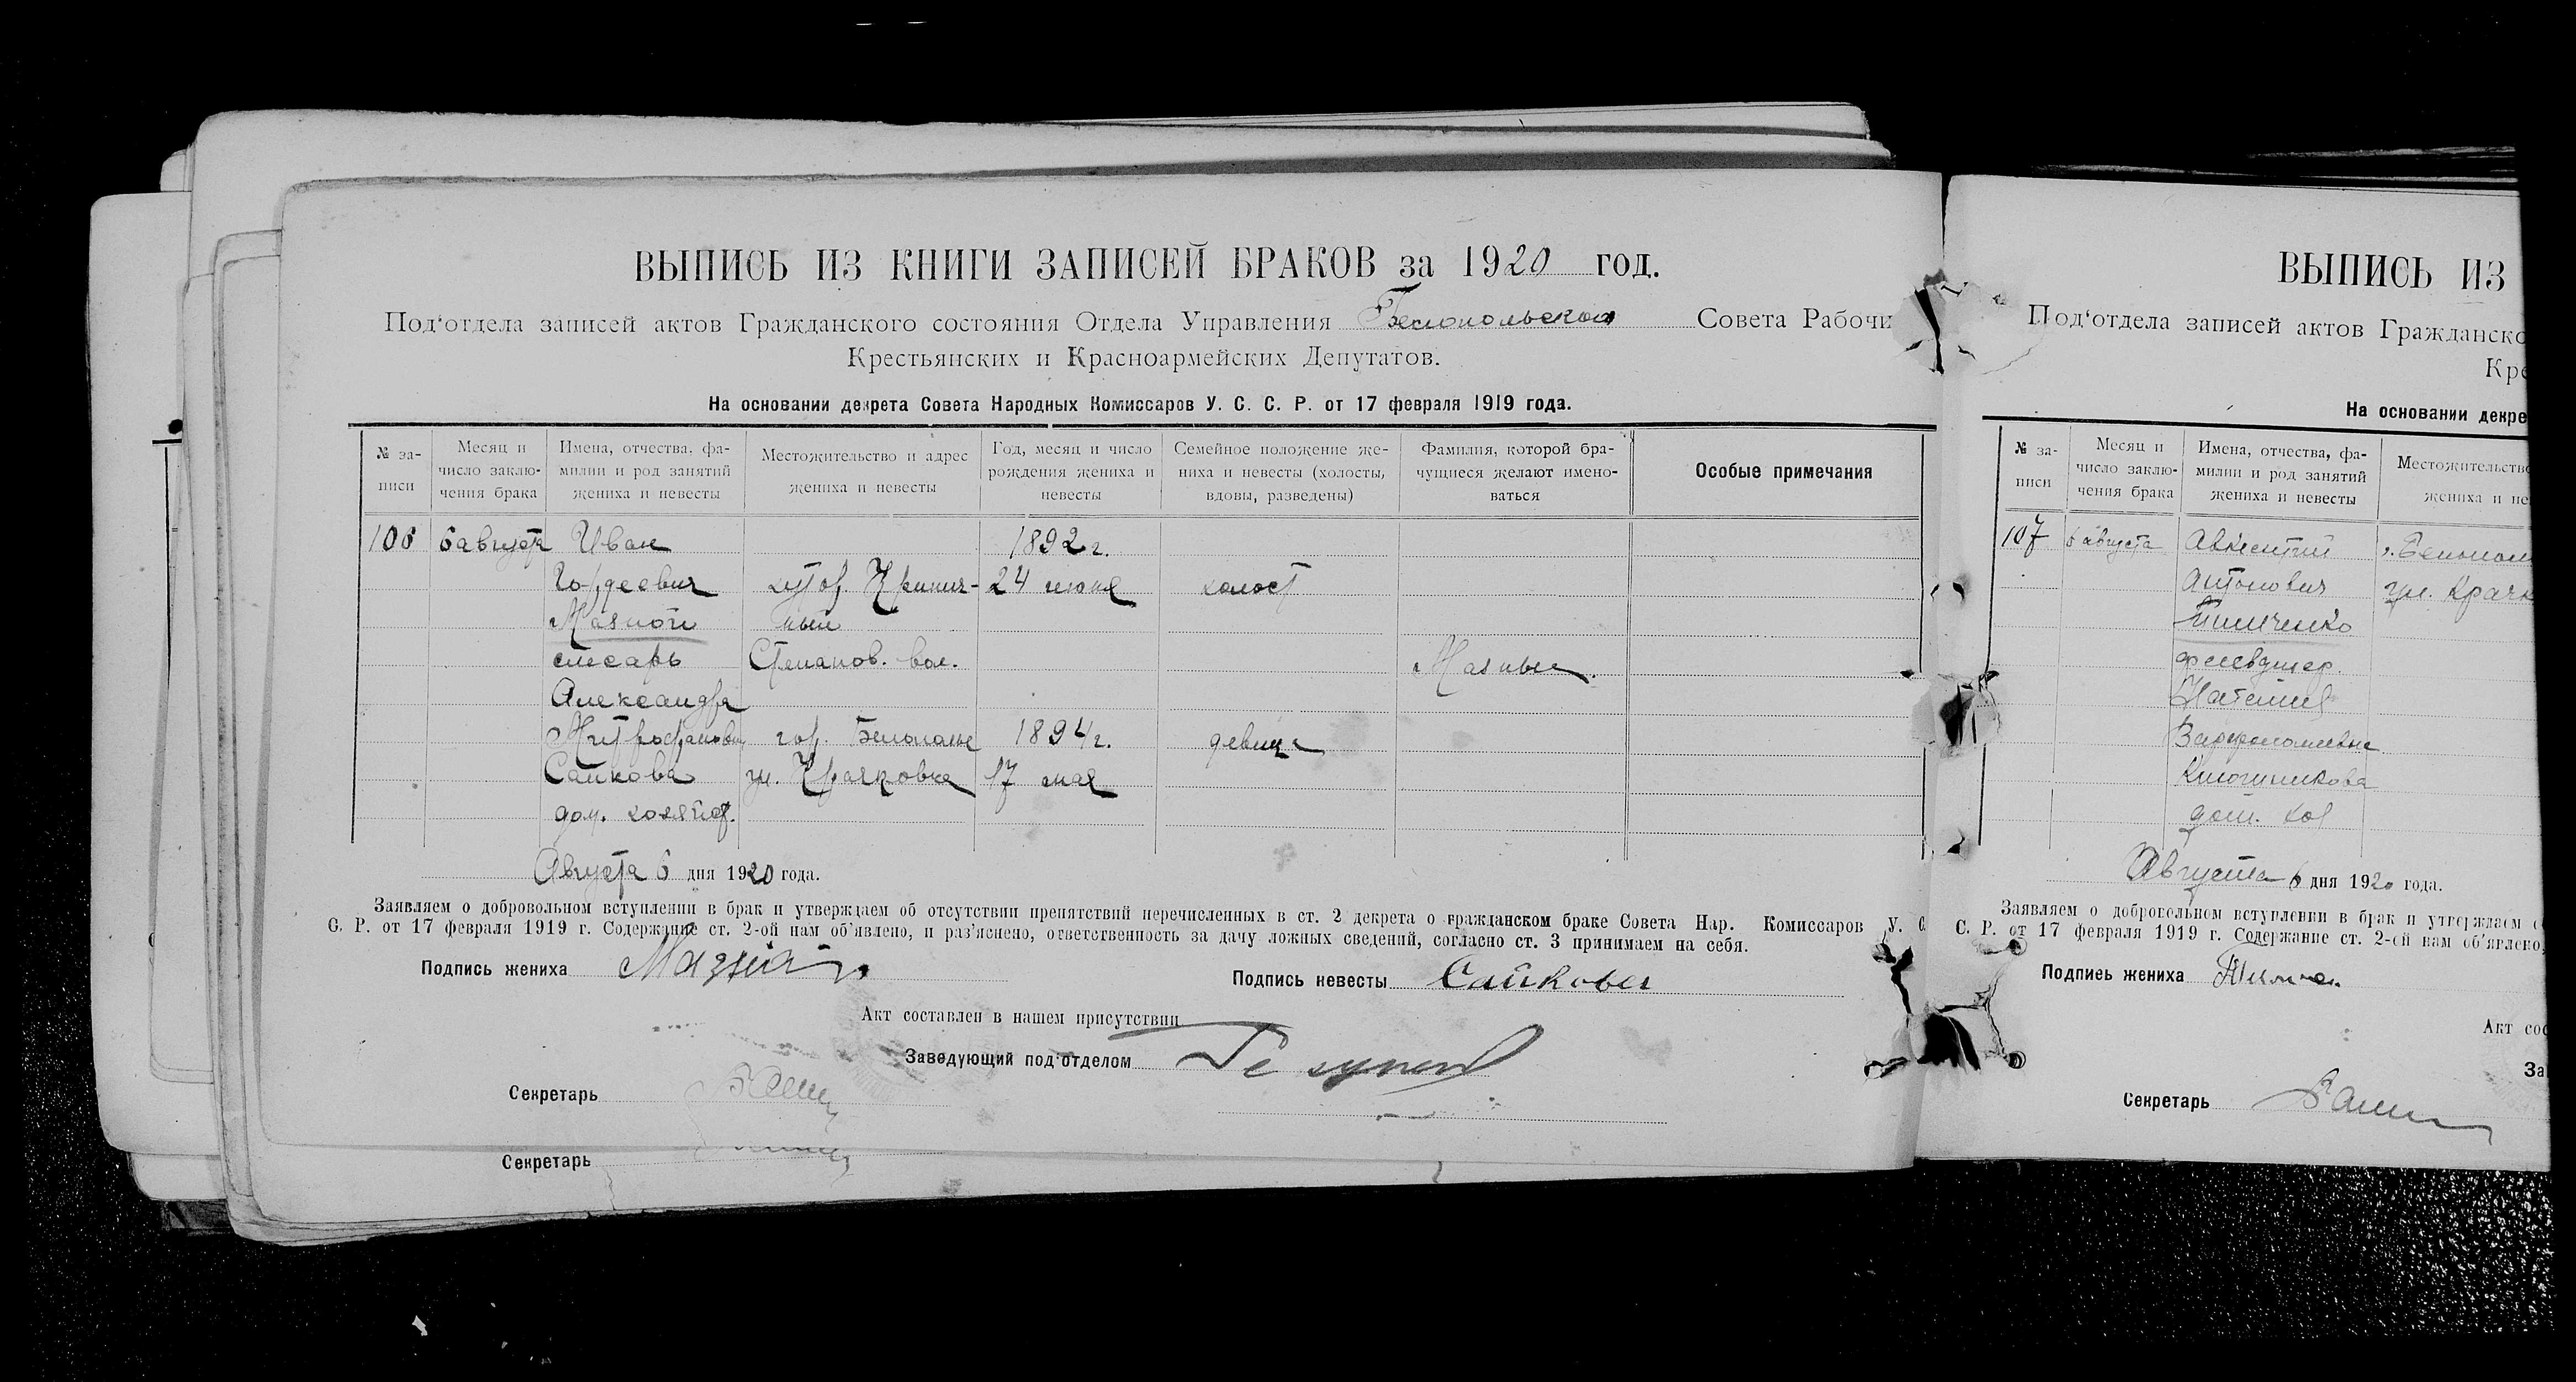 ВЫПИСЬ ИЗ КНИГИ ЗАПИСЕЙ БРАКОВ за 1920 год.
Под‘отдела записей актов Гражданского состояния Отдела Управления Белопольского Совета Рабочи
Крестьянских и Красноармейских Депутатов.
На основании декрета Совета Народных Комиссаров У. С. С. Р. от 17 февраля 1919 года.
№ за-
писи
Месяц и
число заклю-
чения брака
Имена, отчества, фа-
милии и род занятий
жениха и невесты
Местожительство и адрес
жениха и невесты
Год, месяц и число
рождения жениха и
невесты
Семейное положение же-
ниха и невесты (холосты,
вдовы, разведены)
Фамилия, которой бра-
чущиеся желают имено-
ваться
Особые примечания
106 6 августа Иван 1892 г.
Гордеевич хутор. Кринич- 24 июня холост
Мазной ный
слесарь Степанов. вол. Мазные
Александра
Митрофановн гор. Белополье 1894 г. девица
Сайкова ул. Крячковка 17 мая
дом. хозяйст.
Августа 6 дня 1920 года.
Заявляем о добровольном вступлении в брак и утверждаем об отсутствии препятствий перечисленных в ст. 2 декрета о гражданском браке Совета Нар. Комиссаров У. С
С. Р. от 17 февраля 1919 г. Содержание ст. 2-ой нам об‘явлено, и раз‘яснено, ответственность за дачу ложных сведений, согласно ст. 3 принимаем на себя.
Подпись жениха Мазной
Подпись невесты Сайкова
Акт составлен в нашем присутствии
Заведующий под‘отделом
Секретарь
Секретарь
ВЫПИСЬ ИЗ
Под‘отдела записей актов Гражданско
Кре
На основании декре
№ за-
писи
Месяц и
число заклю-
чения брака
Имена, отчества, фа-
милии и род занятий
жениха и невесты
Местожительство
жениха и не
107 6 августа Авксентий г. Белопол
Антонович ул. Крячк
фельдшер.
Варфоломеевна
Ключникова
дом. хоз
Августа 6 дня 1920 года.
Заявляем о добровольном вступлении в брак и утверждаем о
С. Р. от 17 февраля 1919 г. Содержание ст. 2-ой нам об‘явлено,
Подпись жениха
Акт сос
За
Секретарь